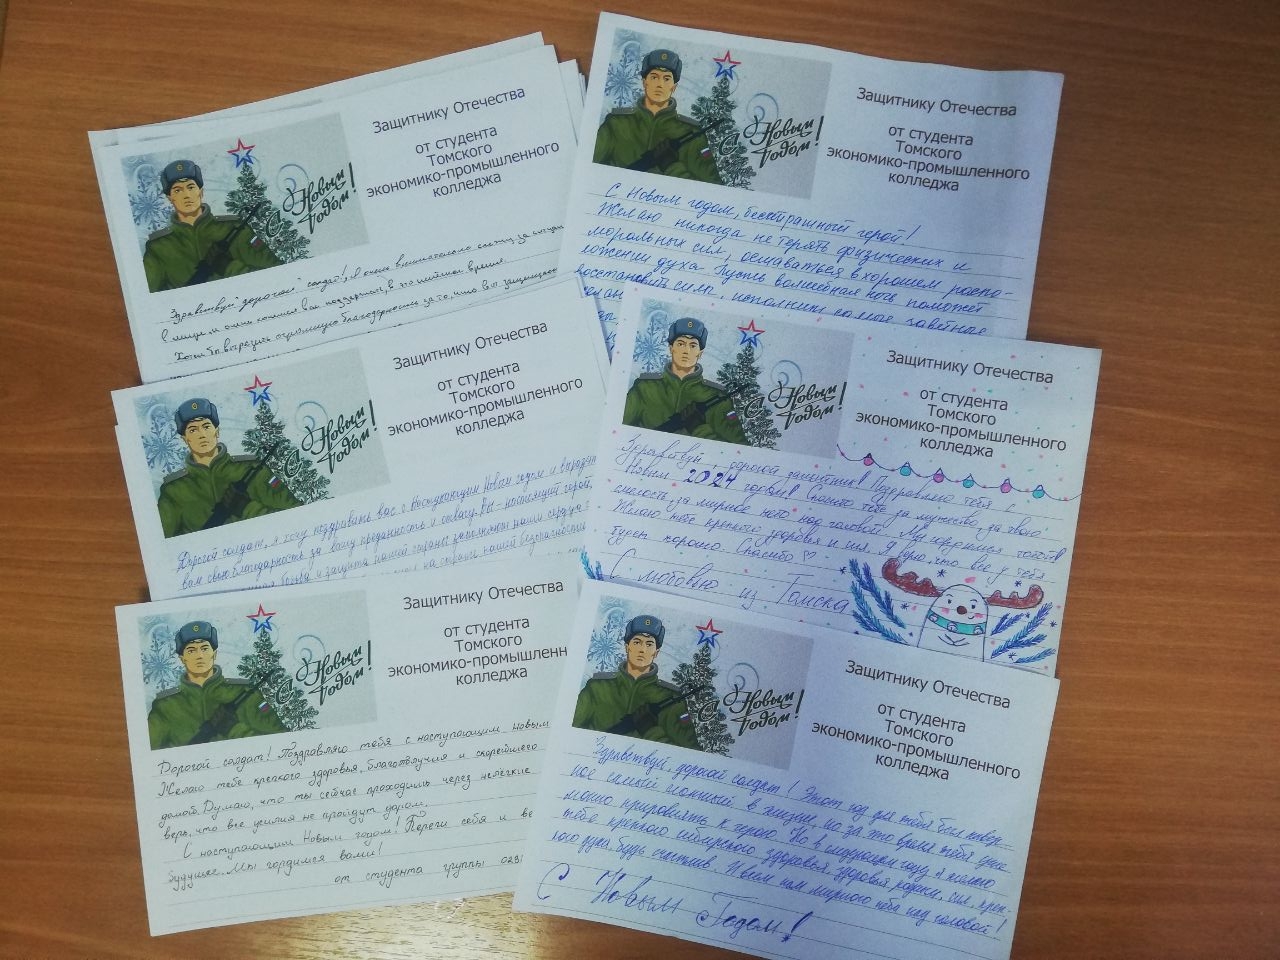 Защитнику Отечества
от студента
Томского
экономико-промышленного
колледжа
С Новым годом!
Здравствуй "дорогой" солдат!, Я очень внимательно слежу за
хотим вас поддержать, в это нелёгкое время.
Хотел бы выразить огромную благодарность за то, что вы защищаете
Защитнику Отечества
от студента
Томского
экономико-промышленного
колледжа
С Новым годом!
С Новым годом, бесстрашный герой!
Желаю никогда не терять физических и
моральных сил, оставаться в хорошем распо-
ложении духа. Пусть волшебная ночь поможет
восстановить силы, исполнит самые заветные
Защитнику Отечества
от студента
Томского
экономико-промышленного
колледжа
С Новым годом!
Дорогой солдат, я хочу поздравить вас с Наступающим Новым годом и выразить
вам свою благодарность за вашу преданность и отвагу. Вы - настоящий герой,
и защита нашей страны заполняют наши сердца
на страже нашей безопасности
Защитнику Отечества
от студента
Томского
экономико-промышленного
колледжа
С Новым годом!
Здравствуй, дорогой защитник! Поздравляю тебя с
Новым 2024 годом! Спасибо тебе за мужество, за твою
смелость, за мирное небо над головой. Мы гордимся тобой!
Желаю тебе крепкого здоровья и сил. Я верю, что всё у тебя
будет хорошо. Спасибо ♡
С любовью из Томска
Защитнику Отечества
от студента
Томского
экономико-промышленн
колледжа
С Новым годом!
Дорогой солдат! Поздравляю тебя с наступающим Новым
Желаю тебе крепкого здоровья, благополучия и скорейшего
домой. Думаю, что ты сейчас проходишь через нелёгкие
верь, что все усилия не пройдут даром.
С наступающим Новым годом! Береги себя и ве
будущее. Мы гордимся вами!
от студента группы 0291
Защитнику Отечества
от студента
Томского
экономико-промышленного
колледжа
С Новым годом!
Здравствуй, дорогой солдат! Этот год для тебя был навер-
ное самый сложный в жизни, но за это время тебя уже
можно приравнять к герою. Но в следующем году я желаю
тебе крепкого сибирского здоровья, здоровья родных, сил, креп-
кого духа, будь счастлив. И всем нам мирного неба над головой!
С Новым Годом!